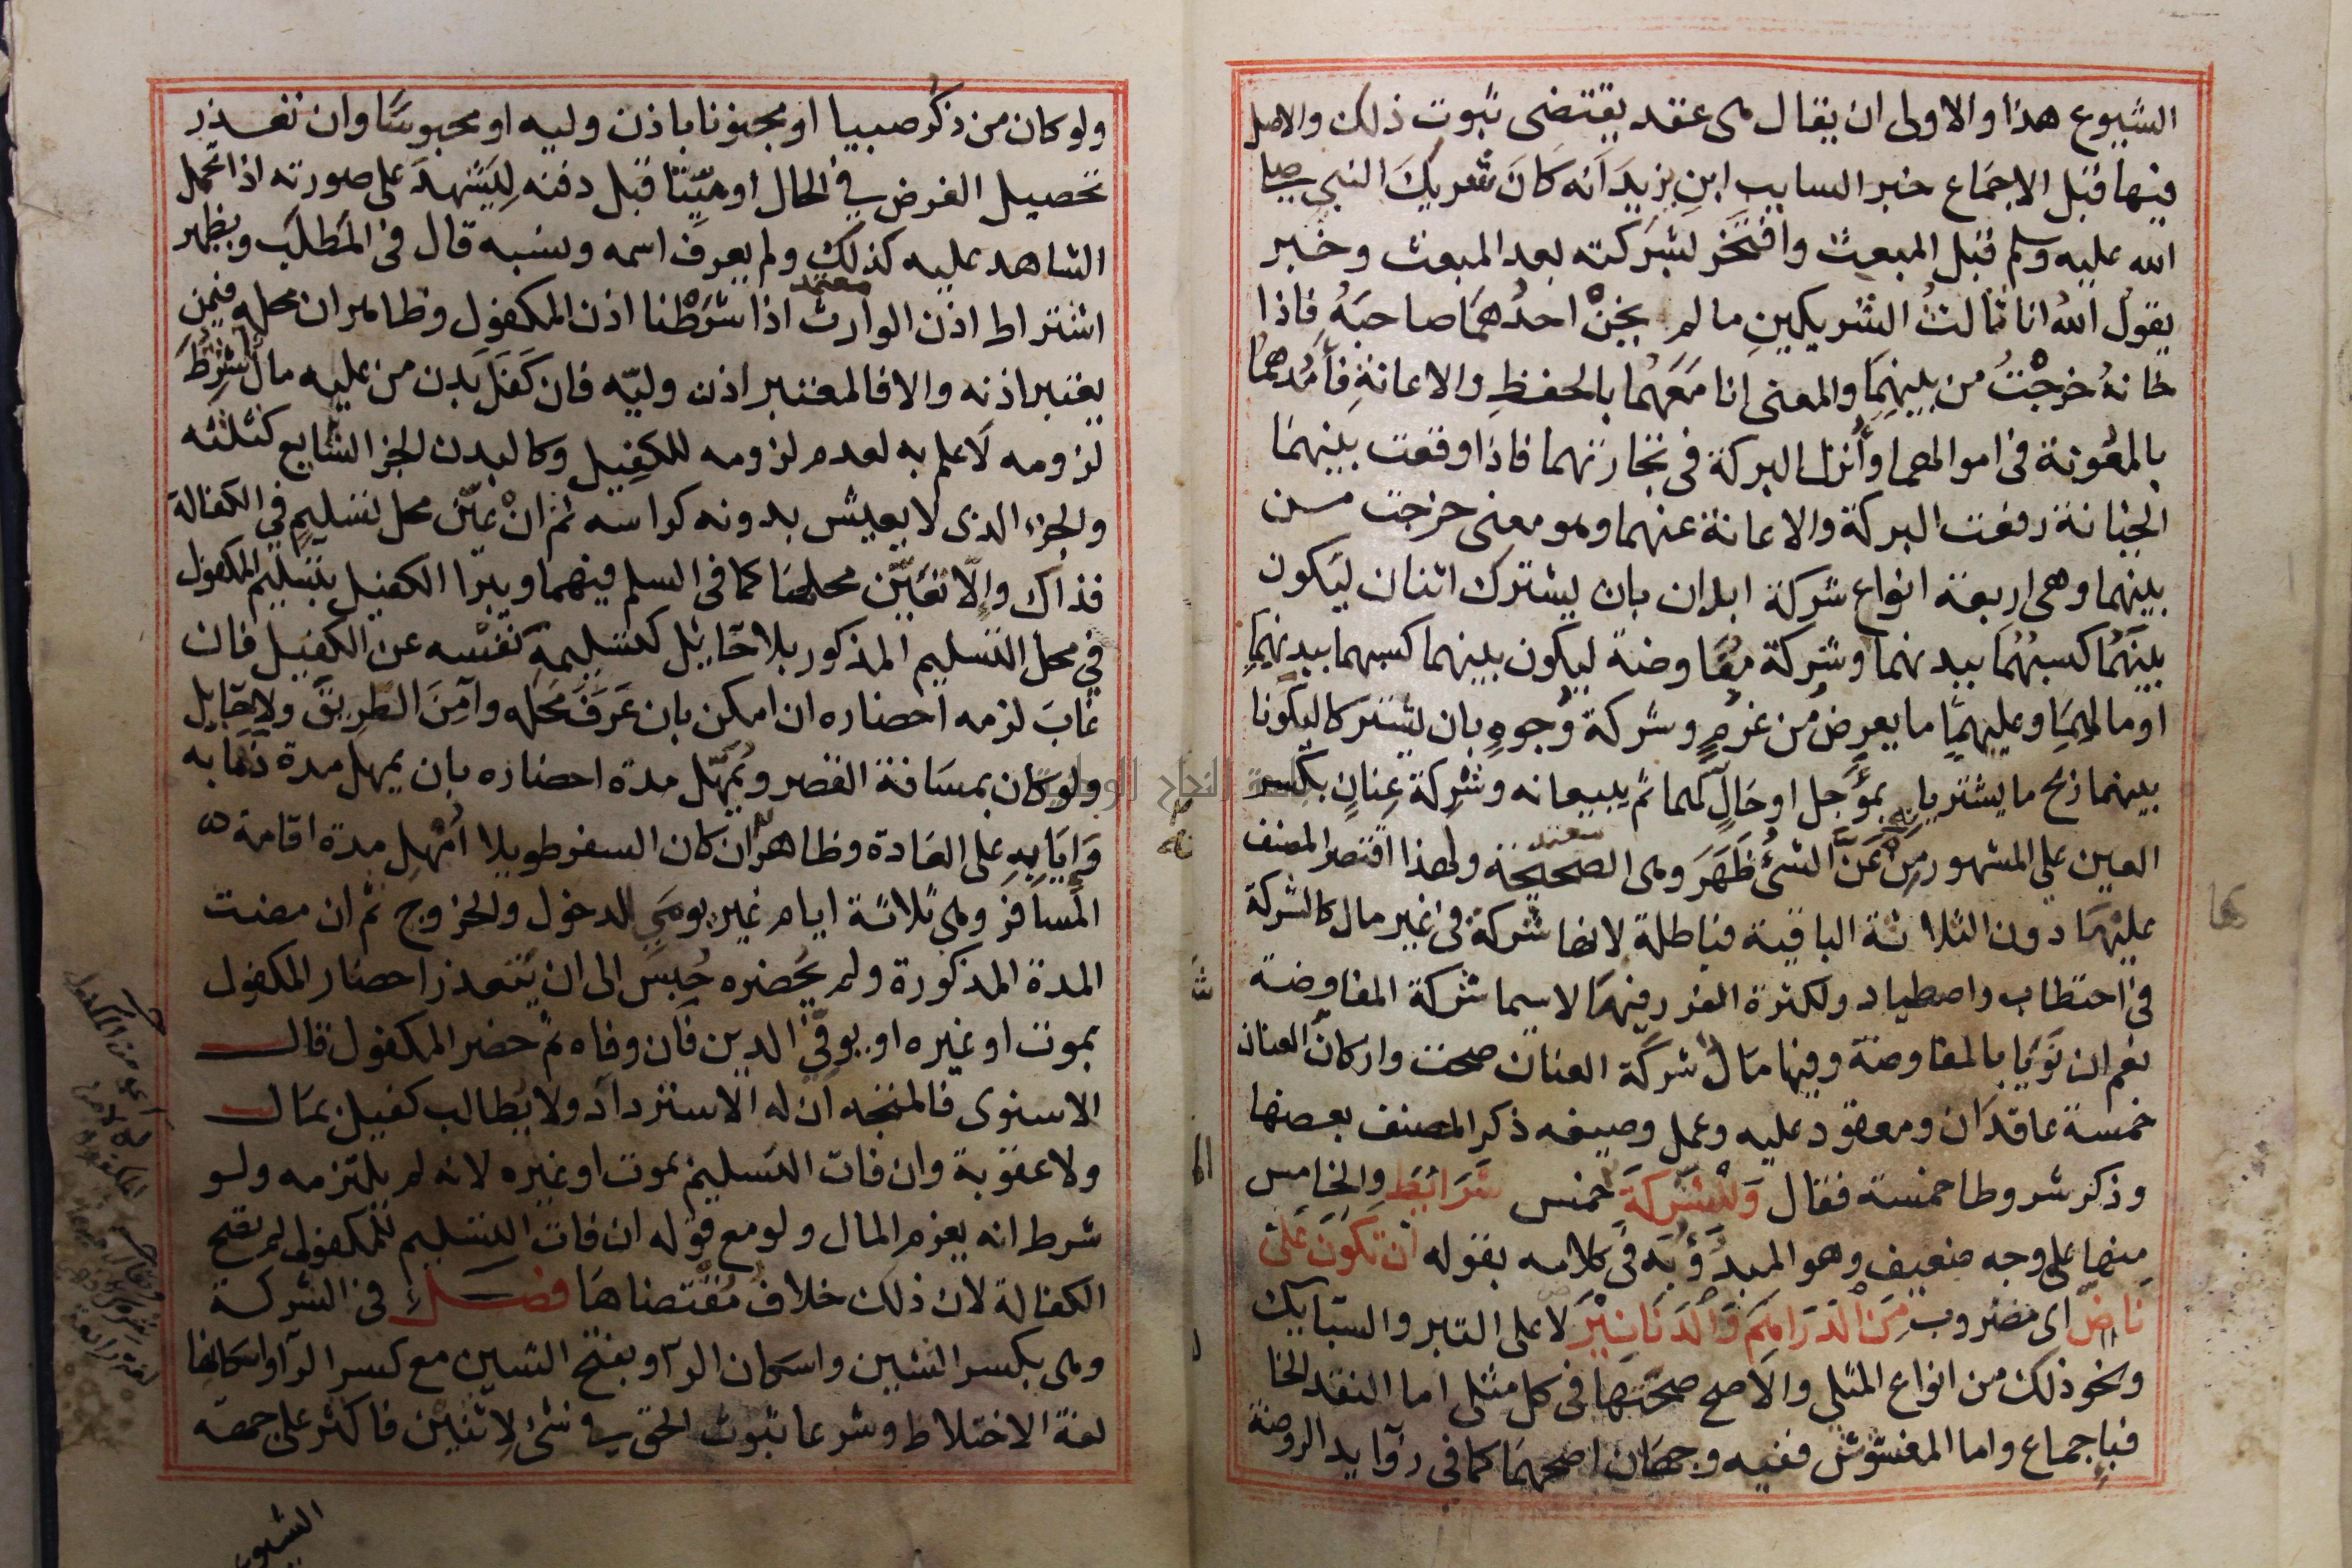 ولو كان من ذكر صبيا او مجنونا باذن وليه او محبوسا وان تعذر
تحصيل الغرض في الحال او ميتا قبل دفنه ليشهد على صورته اذا تحمل
الشاهد عليه كذلك ولم يعرف اسمه ونسبه قال في المطلب ويظهر
معتمد
اشتراط اذن الوارث اذا شرطنا اذن المكفول وظاهر ان محله فيمن
يعتبر اذنه والا فالمعتبر اذن وليه فان كفل بدن من عليه مال شرط
لزومه لا علم به لعدم لزومه للكفيل وكالبدن الجز الشايع كثلثه
والجزء الذى لا يعيش بدونه كراسه ثم ان عين محل تسليم في الكفالة
فذاك والا تعين محلها كما في السلم فيهما ويبرا الكفيل بتسليم المكفول
في محل التسليم المذكور بلا حايل كتسليمه نفسه عن الكفيل فان
غاب لزمه احضاره ان امكن بان عرف محله وآمن الطريق ولا حايل
ولو كان بمسافة القصر ويمهل مدة احضاره بان يمهل مدة ذهابه
وايابه على العادة وظاهر ان كان السفر طويلا امهل مدة اقامة
المسافر وهى ثلاثة ايام غير يومي الدخول والخروج ثم ان مضت
المدة المذكورة ولم يحضره حبس الى ان يتعذر احضار المكفول
بموت او غيره او يوفي الدين فان وفاه ثم حضر المكفول قال
الاسنوى فالمتجه ان له الاسترداد ولا يطالب كفيل بمال
ولا عقوبة وان فات التسليم بموت او غيره لانه لم يلتزمه ولو
شرط انه يغرم المال ولو مع قوله ان فات التسليم للمكفول لم تصح
الكفالة لان ذلك خلاف مقتضاها فصل في الشركة
وهى بكسر الشين واسكان الرآ وبفتح الشين مع كسر الرآ واسكانها
لغة الاختلاط وشرعا ثبوت الحق في شئ لاثنين فاكثر على جهة
الشيوع
الشيوع هذا والاولى ان يقال هى عقد يقتضى ثبوت ذلك والاصل
فيها قبل الاجماع خبر السايب ابن يزيد انه كان شريك النبي صلى
الله عليه وسلم قبل المبعث وافتخر بشركته بعد المبعث وخبر
يقول الله انا ثالث الشريكين ما لم يخن احدهما صاحبه فاذا
خانه خرجت من بينهما والمعنى انا معهما بالحفظ والاعانة فأمدهما
بالمعونة في اموالهما وأنزل البركة في تجارتهما فاذا وقعت بينهما
الخيانة رفعت البركة والاعانة عنهما وهو معنى خرجت من
بينهما وهى اربعة انواع شركة ابدان بان يشترك اثنان ليكون
بينهما كسبهما ببدنهما وشركة مفاوضة ليكون بينهما كسبهما ببدنهما
او مالهما وعليهما ما يعرض من غرم وشركة وجوه بان يشتركا ليكونا
بينهما ربح ما يشتريانه بمؤجل او حال لهما ثم يبيعانه وشركة عنان بكسر
العين على المشهور من عن الشئ ظهر وهى الصحيحة ولهذا اقتصر المصنف
معتمد
عليها دون الثلاثة الباقية فباطلة لانها شركة في غير مال كالشركة
في احتطاب واصطياد ولكثرة الغرر فيها لا سيما شركة المفاوضة
نعم ان نويا بالمفاوضة وفيها مال شركة العنان صحت واركان العنان
خمسة عاقدان ومعقود عليه وعمل وصيغه ذكر المصنف بعضها
وذكر شروطا خمسة فقال وللشركة خمس شرائط والخامس
منها على وجه ضعيف وهو المبدؤ به في كلامه بقوله ان تكون على
ناض اى مضروب من الدراهم والدنانير لا على التبر والسبايك
ونحو ذلك من انواع المثلي والاصح صحتها في كل مثلى اما النقد الخا
فبإجماع واما المغشوش ففيه وجهان اصحهما كما في زوآيد الروضة